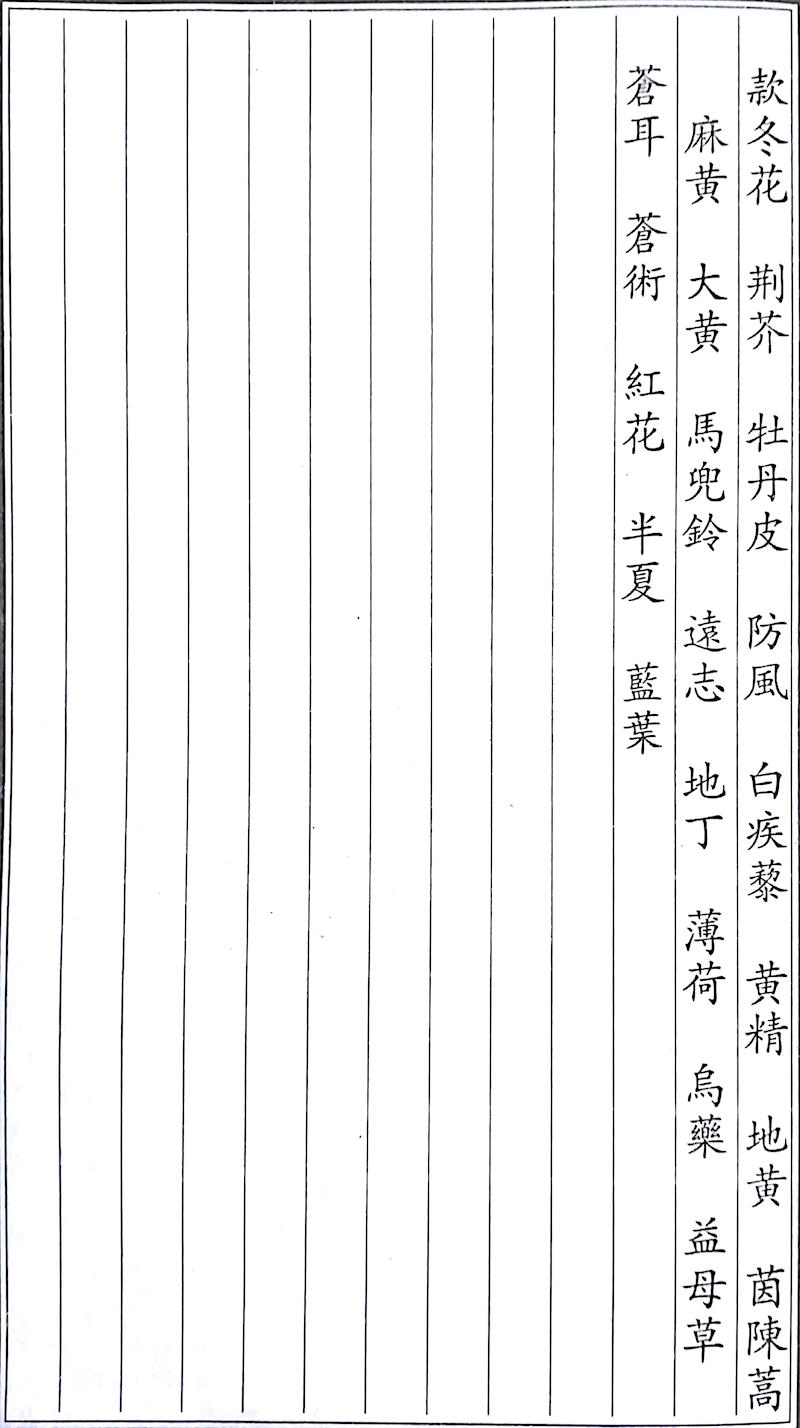 款冬花　荆芥　牡丹皮　防風　白疾藜　黄精　地黄　茵陳蒿
麻黄　大黄　馬兜鈴　遠志　地丁　薄荷　烏藥　益母草
蒼耳　蒼術　紅花　半夏　藍葉